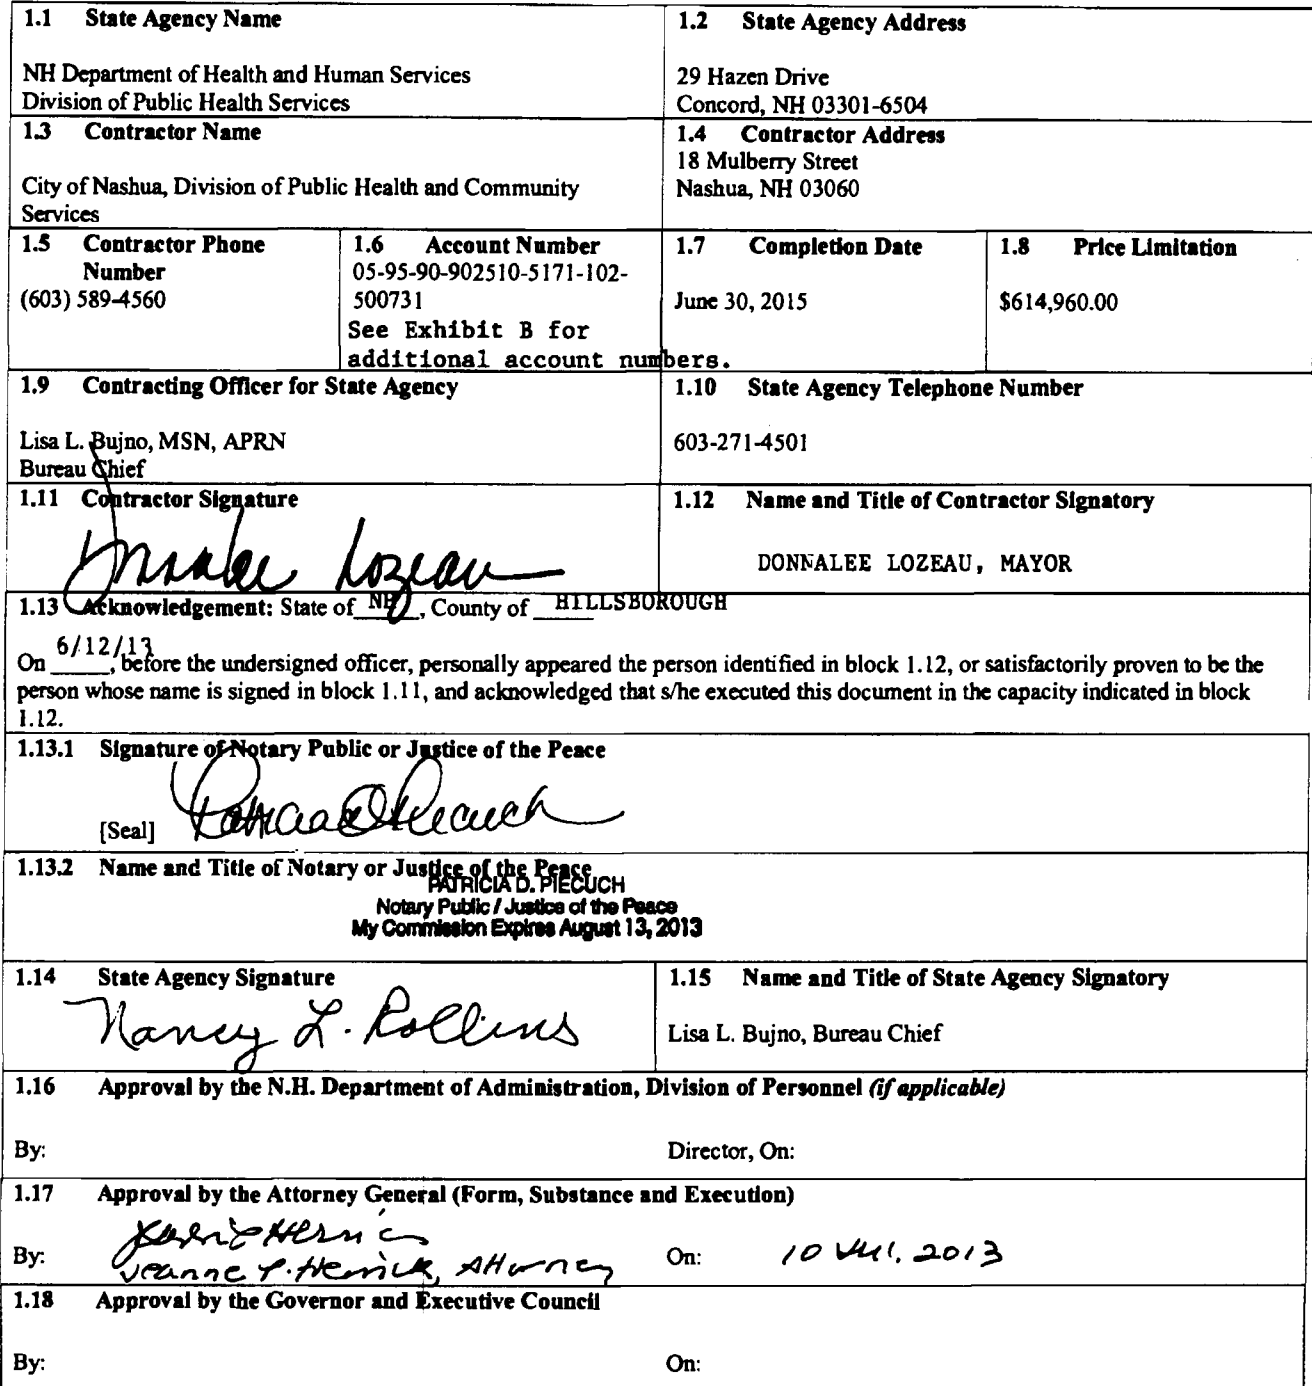 1.1 State Agency Name
NH Department of Health and Human Services
Division of Public Health Services
1.2 State Agency Address
29 Hazen Drive
Concord, NH 03301-6504
1.3 Contractor Name
City of Nashua, Division of Public Health and Community
Services
1.4 Contractor Address
18 Mulberry Street
Nashua, NH 03060
1.5 Contractor Phone
Number
(603) 589-4560
1.6 Account Number
05-95-90-902510-5171-102-
500731
See Exhibit B for
additional account numbers.
1.7 Completion Date
June 30, 2015
1.8 Price Limitation
$614,960.00
1.9 Contracting Officer for State Agency
Lisa L. Bujno, MSN, APRN
Bureau Chief
1.10 State Agency Telephone Number
603-271-4501
1.11 Contractor Signature
Donnalee Lozeau
1.12 Name and Title of Contractor Signatory
DONNALEE LOZEAU, MAYOR
1.13 Acknowledgement: State of NH, County of HILLSBOROUGH
On 6/12/13, before the undersigned officer, personally appeared the person identified in block 1.12, or satisfactorily proven to be the
person whose name is signed in block 1.11, and acknowledged that s/he executed this document in the capacity indicated in block
1.12.
1.13.1 Signature of Notary Public or Justice of the Peace
[Seal] Patricia D Piecuch
1.13.2 Name and Title of Notary or Justice of the Peace
PATRICIA D. PIECUCH
Notary Public / Justice of the Peace
My Commission Expires August 13, 2013
1.14 State Agency Signature
Nancy L. Rollins
1.15 Name and Title of State Agency Signatory
Lisa L. Bujno, Bureau Chief
1.16 Approval by the N.H. Department of Administration, Division of Personnel (if applicable)
By: Director, On:
1.17 Approval by the Attorney General (Form, Substance and Execution)
By: Jeanne P. Herrick, Attorney On: 10 Jul. 2013
1.18 Approval by the Governor and Executive Council
By: On: